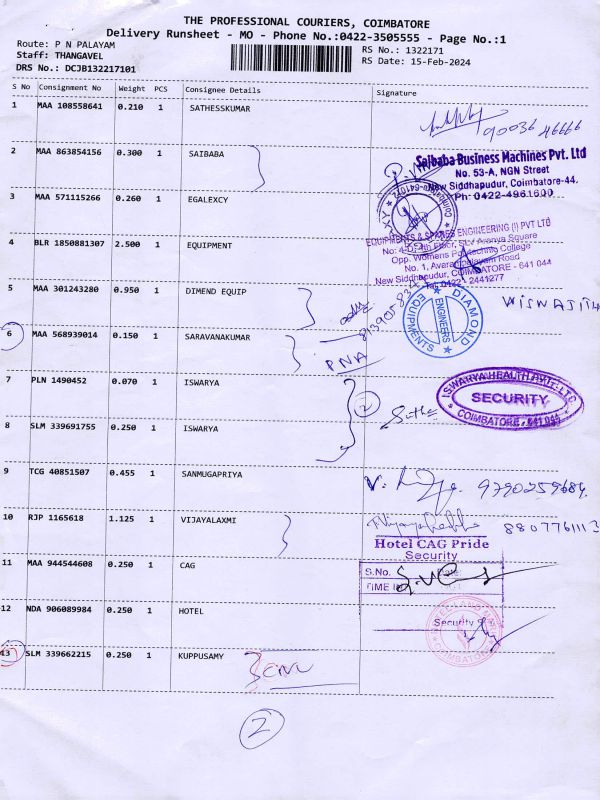 THE PROFESSIONAL COURIERS, COIMBATORE
Delivery Runsheet - MO - Phone No.:0422-3505555 - Page No.:1
Route: P N PALAYAM
Staff: THANGAVEL
DRS No.: DCJB132217101
RS No.: 1322171
RS Date: 15-Feb-2024
S No Consignment No Weight PCS Consignee Details Signature
1 MAA 108558641 0.210 1 SATHESSKUMAR
90036 46666
2 MAA 863854156 0.300 1 SAIBABA
Saibaba Business Machines Pvt. Ltd
No. 53-A, NGN Street
New Siddhapudur, Coimbatore-44.
Ph: 0422-4961600
3 MAA 571115266 0.260 1 EGALEXCY
4 BLR 1850881307 2.500 1 EQUIPMENT
EQUIPMENTS & SPARES ENGINEERING (I) PVT LTD
Opp. Womens Polytechnic College
New Siddhapudur, COIMBATORE - 641 044
Tel: 0422 - 2441277
5 MAA 301243280 0.950 1 DIMEND EQUIP
DIAMOND
ENGINEERS
EQUIPMENTS
6 MAA 568939014 0.150 1 SARAVANAKUMAR
PNA
7 PLN 1490452 0.070 1 ISWARYA
2
ISWARYA HEALTH PVT. LTD
SECURITY
COIMBATORE - 641 044
8 SLM 339691755 0.250 1 ISWARYA
9 TCG 40851507 0.455 1 SANMUGAPRIYA
9790259684.
10 RJP 1165618 1.125 1 VIJAYALAXMI
8807761113
Hotel CAG Pride
Security
11 MAA 944544608 0.250 1 CAG
S.No. Date:
TIME IN
12 NDA 906089984 0.250 1 HOTEL
Security
COIMBATORE
13 SLM 339662215 0.250 1 KUPPUSAMY
2